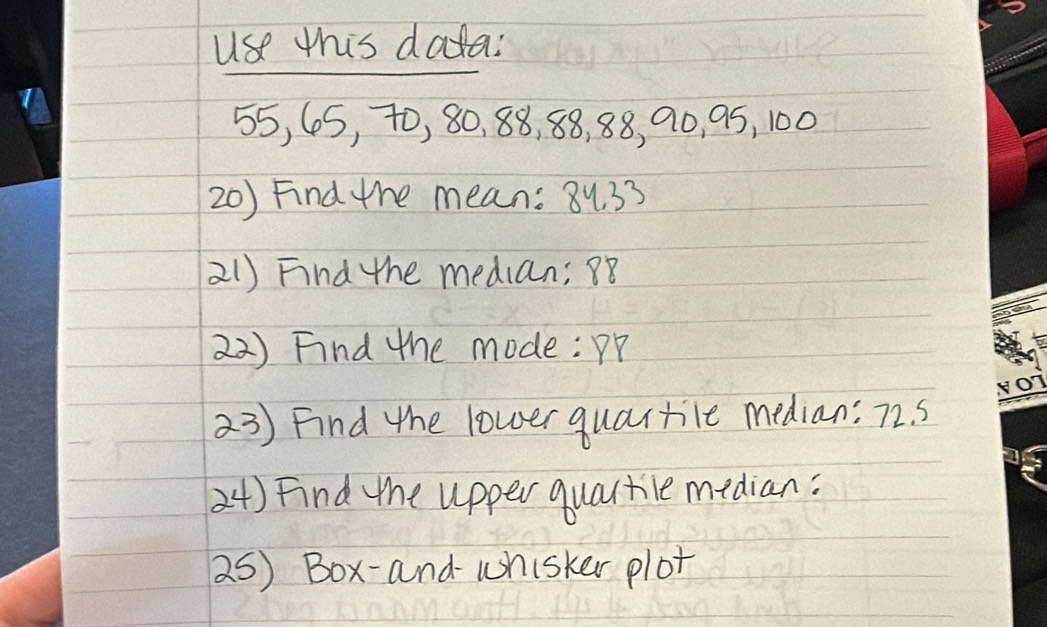 Use this data:
55, 65, 70, 80, 88, 88, 88, 90, 95, 100
20) Find the mean: 84.33
21) Find the median: 88
22) Find the mode: 88
23) Find the lower quartile median: 72.5
24) Find the upper quartile median:
25) Box-and-whisker plot
LOA